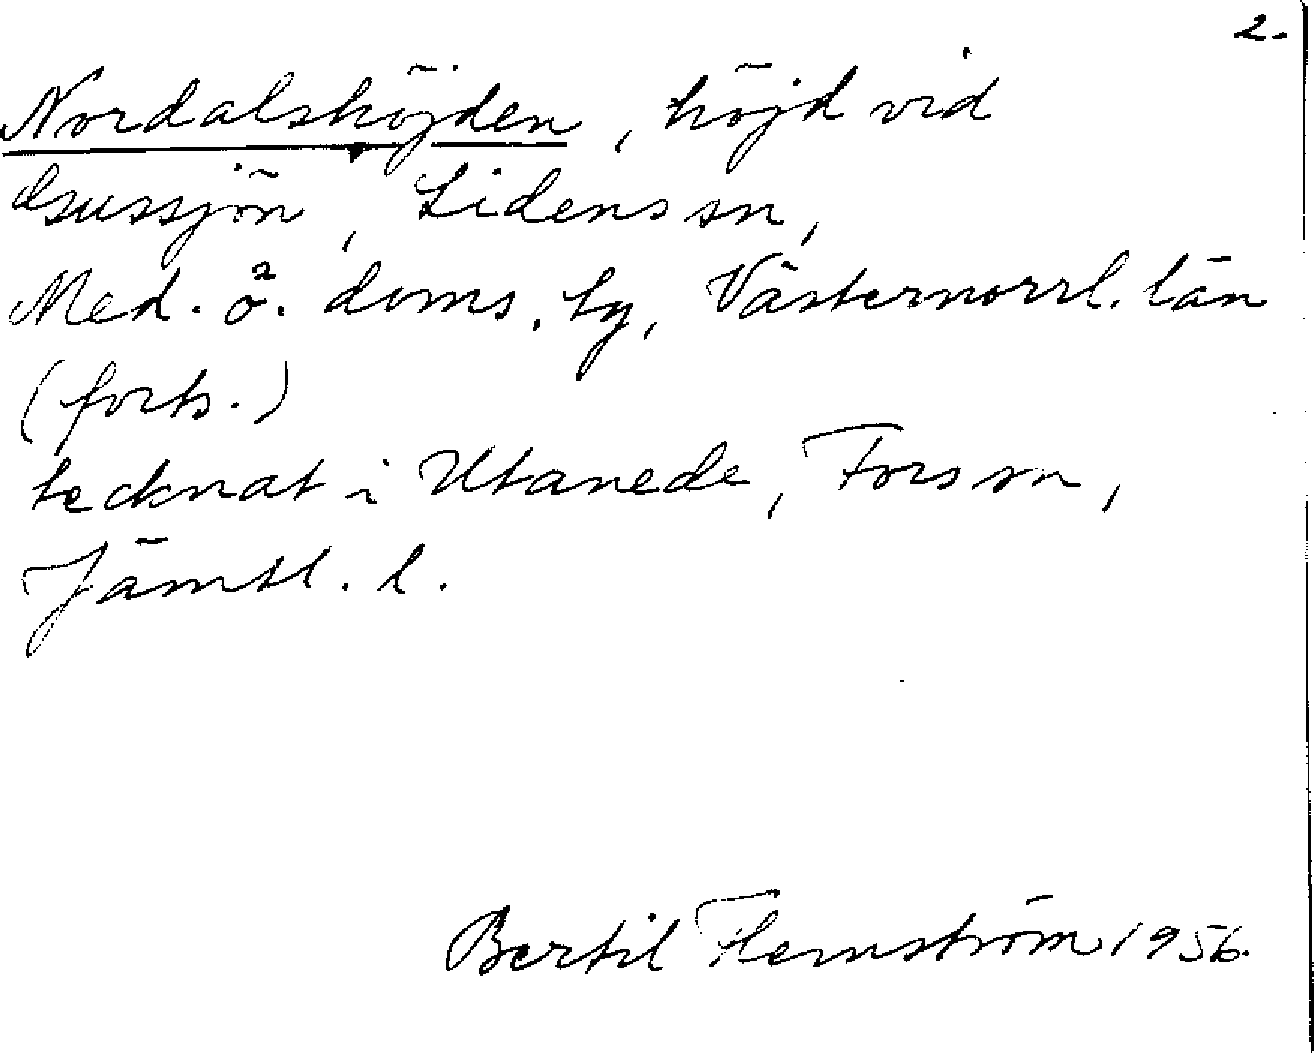 2.
Nordalshöjden, höjd vid
Gussjön, Lidens sn,
Med. ö. doms. tg, Västernorrl. län
(forts.)
tecknat i Utanede, Fors sn,
Jämtl. l.
Bertil Flemström 1956.